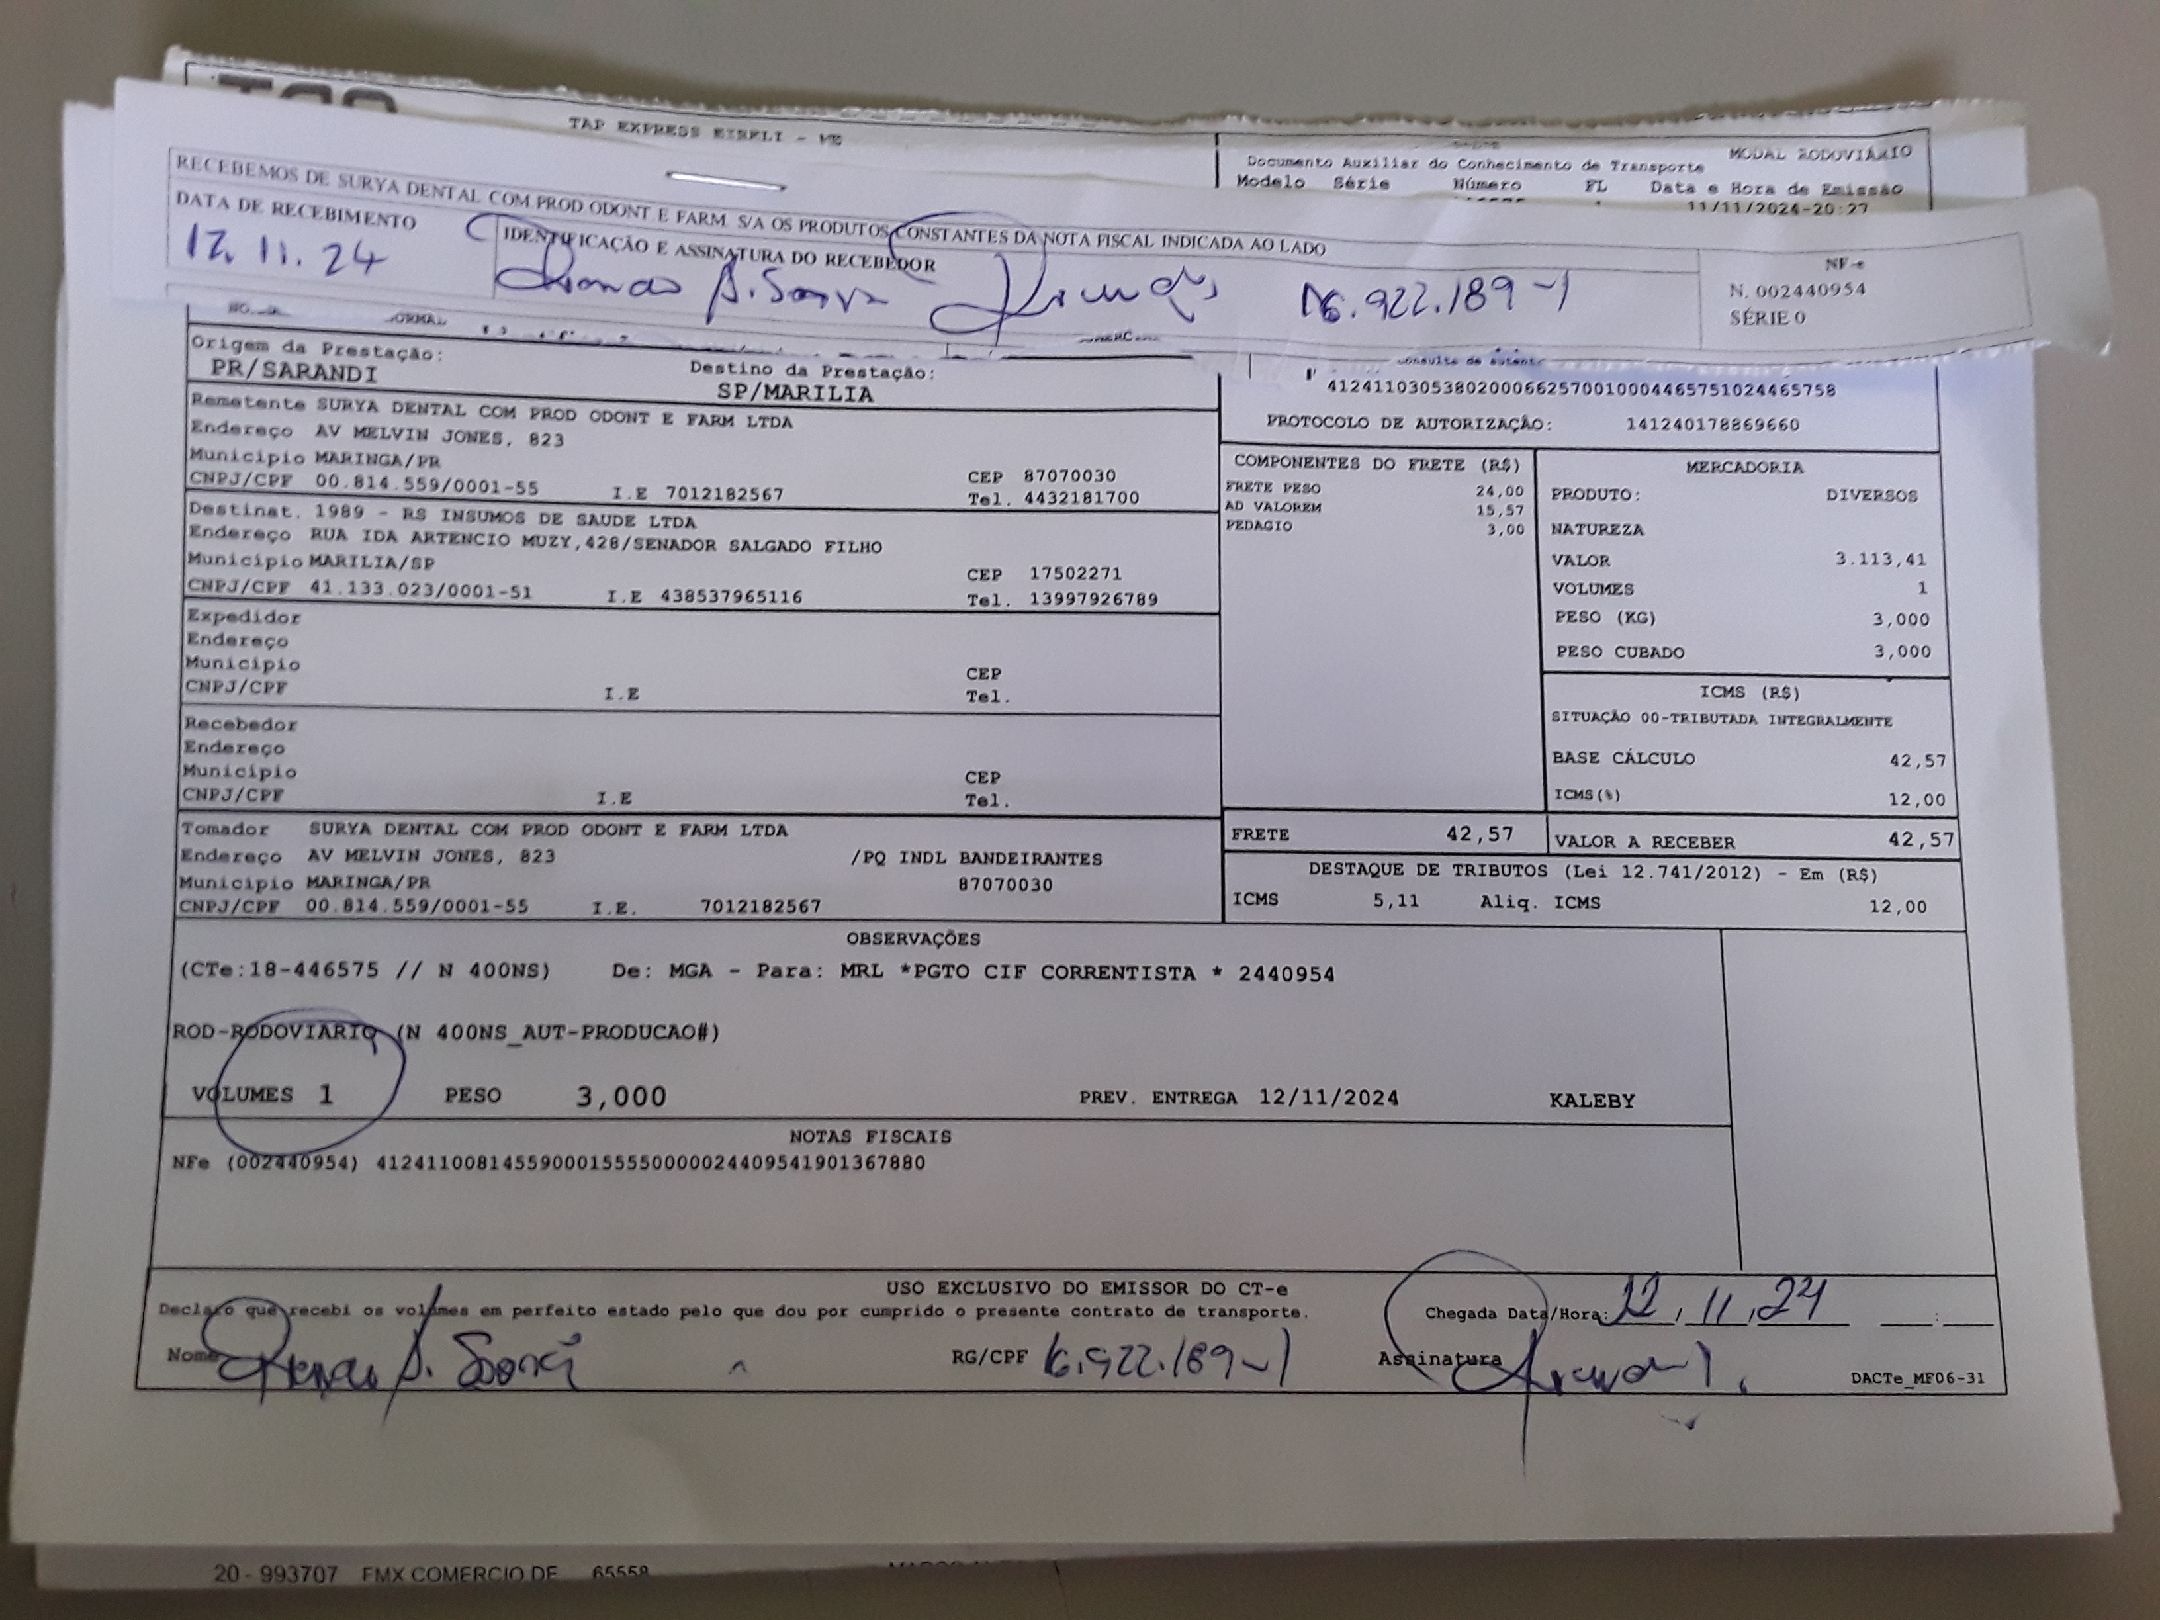 TAP EXPRESS EIRELI - ME
MODAL RODOVIÁRIO
Documento Auxiliar do Conhecimento de Transporte
Modelo Série Número FL Data e Hora de Emissão
11/11/2024-20:27
RECEBEMOS DE SURYA DENTAL COM PROD ODONT E FARM S/A OS PRODUTOS CONSTANTES DA NOTA FISCAL INDICADA AO LADO
DATA DE RECEBIMENTO IDENTIFICAÇÃO E ASSINATURA DO RECEBEDOR
12.11.24 16.922.189-1
NF-e
N. 002440954
SÉRIE 0
Origem da Prestação: Destino da Prestação:
PR/SARANDI SP/MARILIA
41241103053802000662570010004465751024465758
PROTOCOLO DE AUTORIZAÇÃO: 141240178869660
Remetente SURYA DENTAL COM PROD ODONT E FARM LTDA
Endereço AV MELVIN JONES, 823
Municipio MARINGA/PR CEP 87070030
CNPJ/CPF 00.814.559/0001-55 I.E 7012182567 Tel. 4432181700
Destinat. 1989 - RS INSUMOS DE SAUDE LTDA
Endereço RUA IDA ARTENCIO MUZY,428/SENADOR SALGADO FILHO
Municipio MARILIA/SP CEP 17502271
CNPJ/CPF 41.133.023/0001-51 I.E 438537965116 Tel. 13997926789
Expedidor
Endereço
Municipio CEP
CNPJ/CPF I.E Tel.
Recebedor
Endereço
Municipio CEP
CNPJ/CPF I.E Tel.
Tomador SURYA DENTAL COM PROD ODONT E FARM LTDA
Endereço AV MELVIN JONES, 823 /PQ INDL BANDEIRANTES
Municipio MARINGA/PR 87070030
CNPJ/CPF 00.814.559/0001-55 I.E. 7012182567
COMPONENTES DO FRETE (R$)
FRETE PESO 24,00
AD VALOREM 15,57
PEDAGIO 3,00
MERCADORIA
PRODUTO: DIVERSOS
NATUREZA
VALOR 3.113,41
VOLUMES 1
PESO (KG) 3,000
PESO CUBADO 3,000
ICMS (R$)
SITUAÇÃO 00-TRIBUTADA INTEGRALMENTE
BASE CÁLCULO 42,57
ICMS(%) 12,00
FRETE 42,57 VALOR A RECEBER 42,57
DESTAQUE DE TRIBUTOS (Lei 12.741/2012) - Em (R$)
ICMS 5,11 Aliq. ICMS 12,00
OBSERVAÇÕES
(CTe:18-446575 // N 400NS) De: MGA - Para: MRL *PGTO CIF CORRENTISTA * 2440954
ROD-RODOVIARIO (N 400NS_AUT-PRODUCAO#)
VOLUMES 1 PESO 3,000 PREV. ENTREGA 12/11/2024 KALEBY
NOTAS FISCAIS
NFe (002440954) 41241100814559000155550000024409541901367880
USO EXCLUSIVO DO EMISSOR DO CT-e
Declaro que recebi os volumes em perfeito estado pelo que dou por cumprido o presente contrato de transporte. Chegada Data/Hora: 12/11/24 :
Nome RG/CPF 16.922.189-1 Assinatura
DACTe_MF06-31
20 - 993707 FMX COMERCIO DE 65558